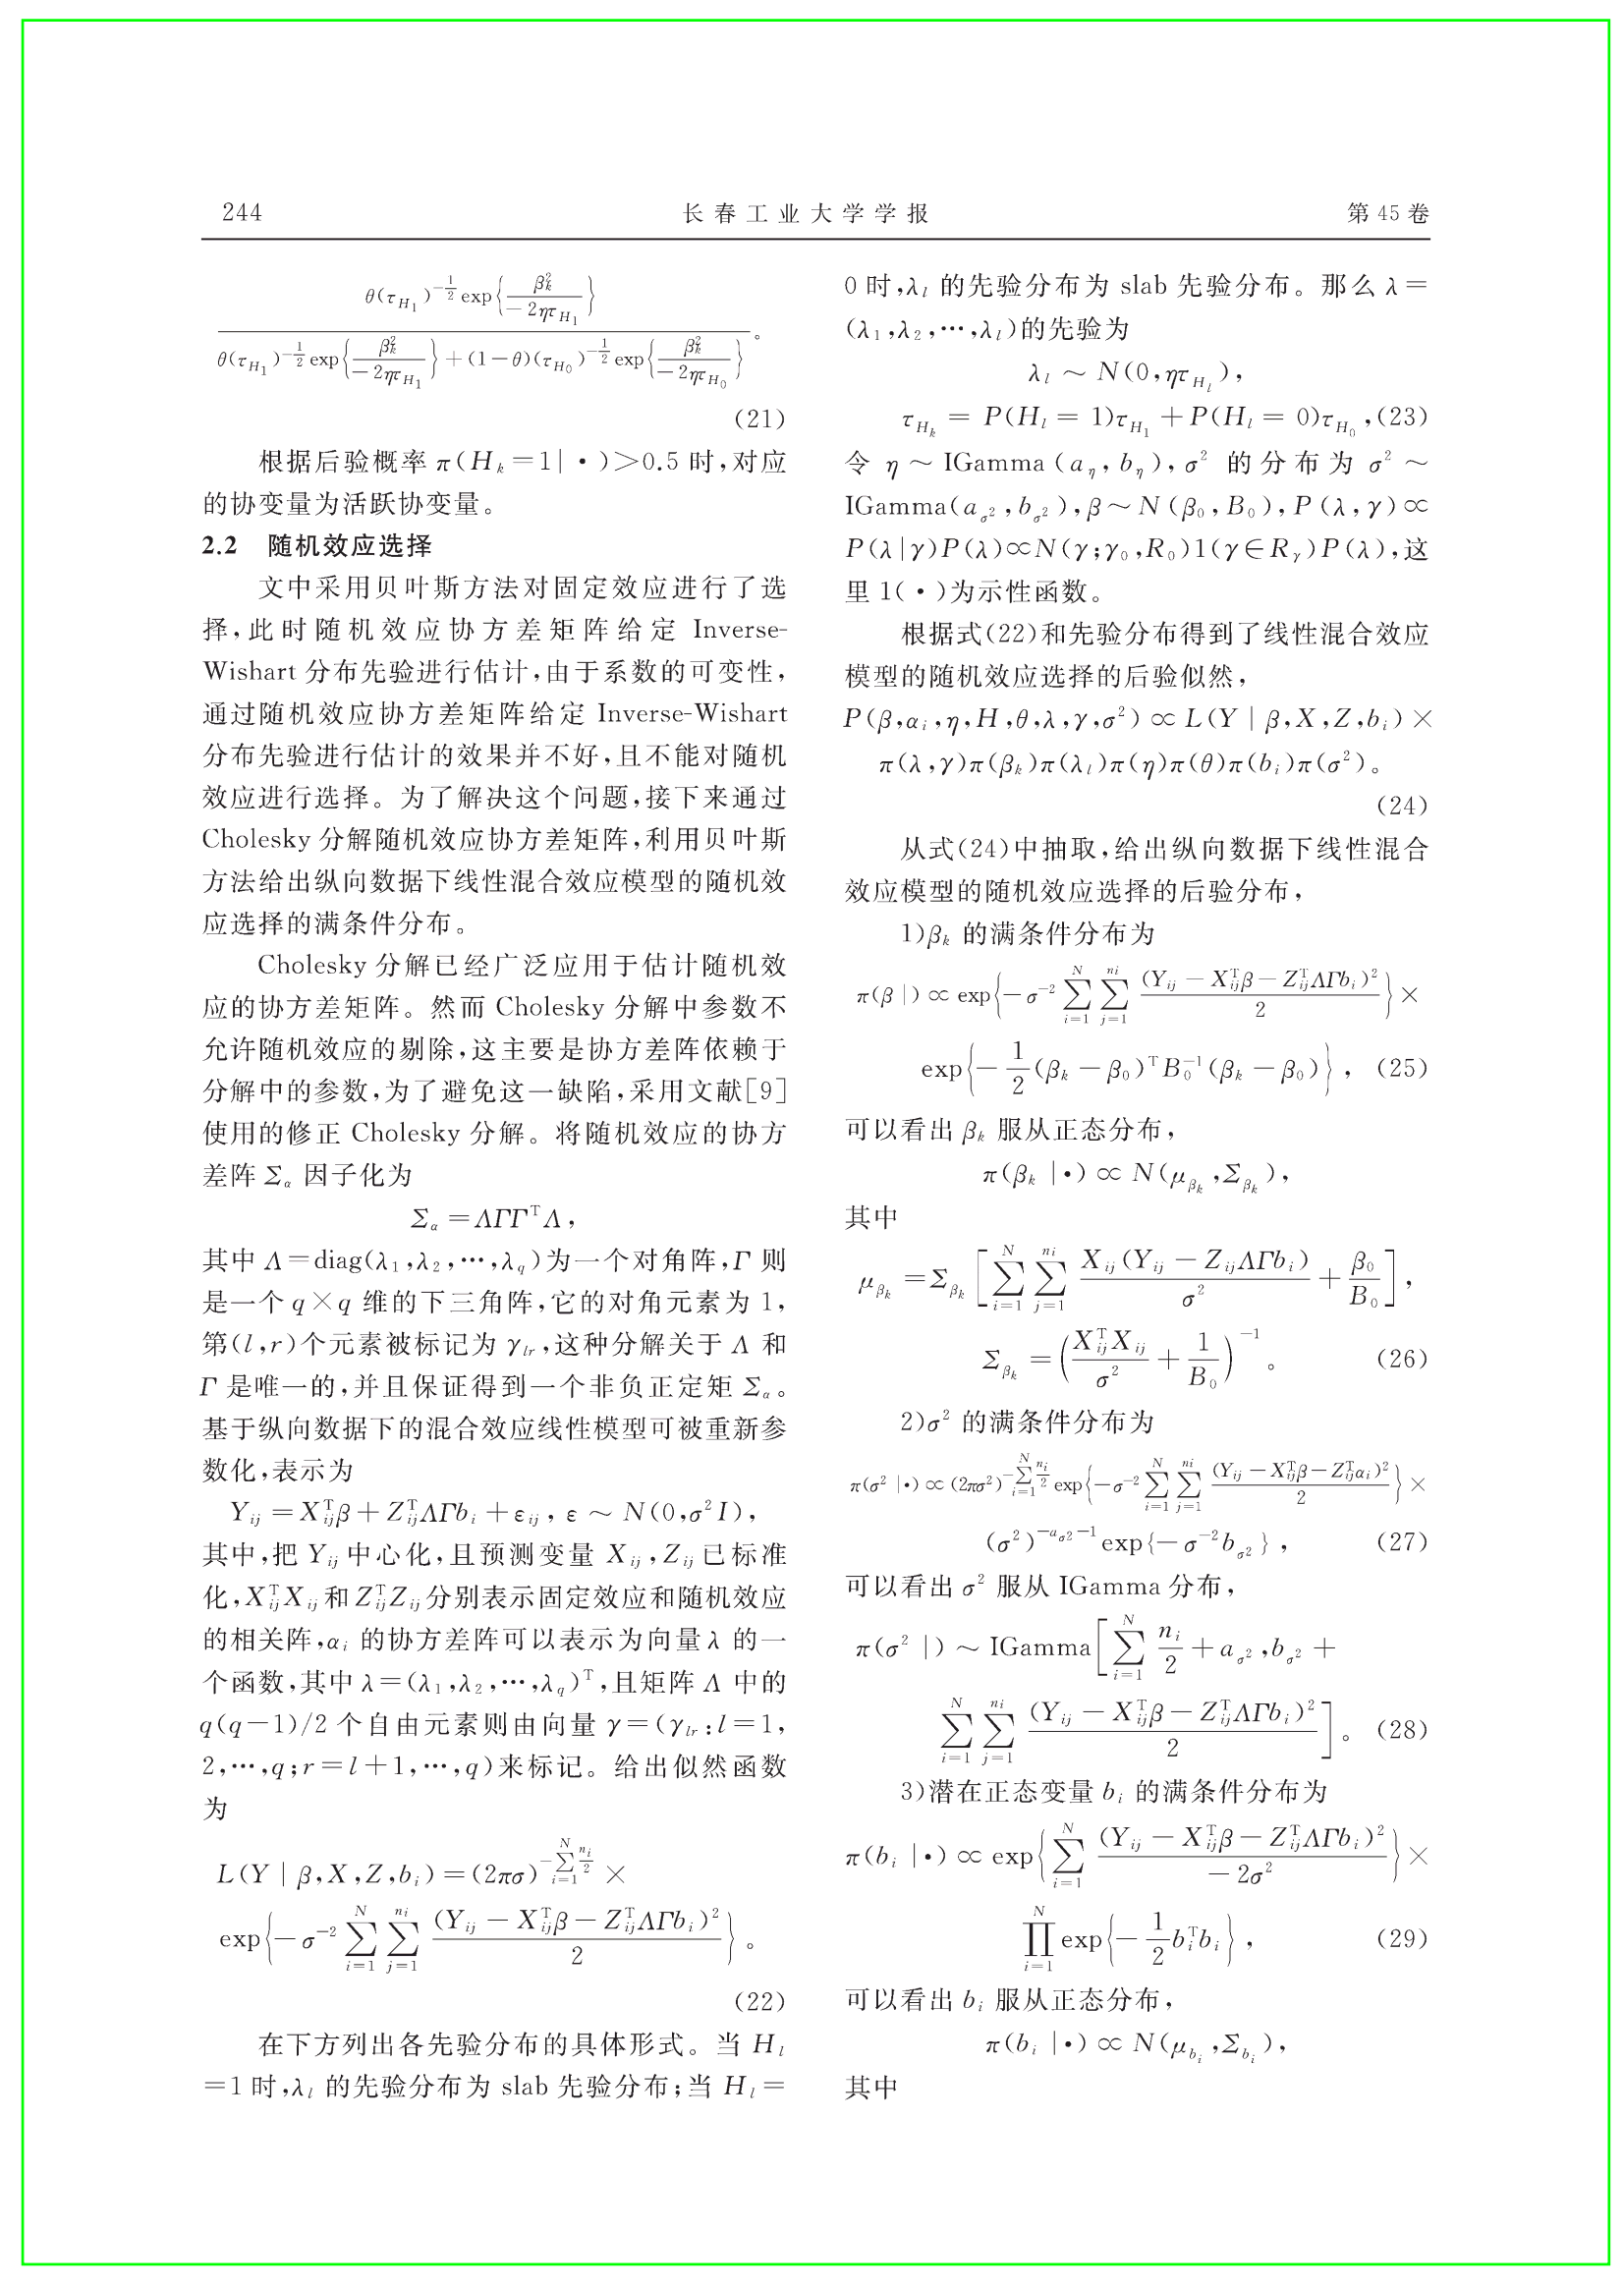 244
长春工业大学学报
第45卷
θ(τ_{H_1})^{-1/2} exp{β_k^2 / (-2ητ_{H_1})}
/ θ(τ_{H_1})^{-1/2} exp{β_k^2 / (-2ητ_{H_1})} + (1-θ)(τ_{H_0})^{-1/2} exp{β_k^2 / (-2ητ_{H_0})} 。
(21)
根据后验概率 π(H_k=1|·)>0.5时,对应
的协变量为活跃协变量。
2.2 随机效应选择
文中采用贝叶斯方法对固定效应进行了选
择,此时随机效应协方差矩阵给定 Inverse-
Wishart 分布先验进行估计,由于系数的可变性,
通过随机效应协方差矩阵给定 Inverse-Wishart
分布先验进行估计的效果并不好,且不能对随机
效应进行选择。为了解决这个问题,接下来通过
Cholesky 分解随机效应协方差矩阵,利用贝叶斯
方法给出纵向数据下线性混合效应模型的随机效
应选择的满条件分布。
Cholesky 分解已经广泛应用于估计随机效
应的协方差矩阵。然而 Cholesky 分解中参数不
允许随机效应的剔除,这主要是协方差阵依赖于
分解中的参数,为了避免这一缺陷,采用文献[9]
使用的修正 Cholesky 分解。将随机效应的协方
差阵 Σ_α 因子化为
Σ_α=ΛΓΓ^TΛ,
其中 Λ=diag(λ_1,λ_2,…,λ_q)为一个对角阵,Γ 则
是一个 q×q 维的下三角阵,它的对角元素为 1,
第(l,r)个元素被标记为 γ_{lr},这种分解关于 Λ 和
Γ 是唯一的,并且保证得到一个非负正定矩 Σ_α。
基于纵向数据下的混合效应线性模型可被重新参
数化,表示为
Y_{ij}=X_{ij}^Tβ+Z_{ij}^TΛΓb_i+ε_{ij}, ε～N(0,σ^2I),
其中,把 Y_{ij} 中心化,且预测变量 X_{ij},Z_{ij} 已标准
化,X_{ij}^TX_{ij} 和 Z_{ij}^TZ_{ij} 分别表示固定效应和随机效应
的相关阵,α_i 的协方差阵可以表示为向量 λ 的一
个函数,其中 λ=(λ_1,λ_2,…,λ_q)^T,且矩阵 Λ 中的
q(q-1)/2 个自由元素则由向量 γ=(γ_{lr}:l=1,
2,…,q;r=l+1,…,q)来标记。给出似然函数
为
L(Y|β,X,Z,b_i)=(2πσ)^{-∑_{i=1}^{N} n_i/2}×
exp{-σ^{-2}∑_{i=1}^{N}∑_{j=1}^{n_i} (Y_{ij}-X_{ij}^Tβ-Z_{ij}^TΛΓb_i)^2 / 2}。
(22)
在下方列出各先验分布的具体形式。当 H_l
=1时,λ_l 的先验分布为 slab 先验分布;当 H_l=
0时,λ_l 的先验分布为 slab 先验分布。那么 λ=
(λ_1,λ_2,…,λ_l)的先验为
λ_l～N(0,ητ_{H_l}),
τ_{H_k}=P(H_l=1)τ_{H_1}+P(H_l=0)τ_{H_0},(23)
令 η～IGamma(a_η,b_η),σ^2 的分布为 σ^2～
IGamma(a_{σ^2},b_{σ^2}),β～N(β_0,B_0),P(λ,γ)∝
P(λ|γ)P(λ)∝N(γ;γ_0,R_0)1(γ∈R_γ)P(λ),这
里 1(·)为示性函数。
根据式(22)和先验分布得到了线性混合效应
模型的随机效应选择的后验似然,
P(β,α_i,η,H,θ,λ,γ,σ^2)∝L(Y|β,X,Z,b_i)×
π(λ,γ)π(β_k)π(λ_l)π(η)π(θ)π(b_i)π(σ^2)。
(24)
从式(24)中抽取,给出纵向数据下线性混合
效应模型的随机效应选择的后验分布,
1)β_k 的满条件分布为
π(β|)∝exp{-σ^{-2}∑_{i=1}^{N}∑_{j=1}^{n_i} (Y_{ij}-X_{ij}^Tβ-Z_{ij}^TΛΓb_i)^2 / 2}×
exp{-1/2(β_k-β_0)^TB_0^{-1}(β_k-β_0)}, (25)
可以看出 β_k 服从正态分布,
π(β_k|·)∝N(μ_{β_k},Σ_{β_k}),
其中
μ_{β_k}=Σ_{β_k}[∑_{i=1}^{N}∑_{j=1}^{n_i} X_{ij}(Y_{ij}-Z_{ij}ΛΓb_i)/σ^2 + β_0/B_0],
Σ_{β_k}=(X_{ij}^TX_{ij}/σ^2 + 1/B_0)^{-1}。 (26)
2)σ^2 的满条件分布为
π(σ^2|·)∝(2πσ^2)^{-∑_{i=1}^{N} n_i/2}exp{-σ^{-2}∑_{i=1}^{N}∑_{j=1}^{n_i} (Y_{ij}-X_{ij}^Tβ-Z_{ij}^Tα_i)^2 / 2}×
(σ^2)^{-a_{σ^2}-1}exp{-σ^{-2}b_{σ^2}}, (27)
可以看出 σ^2 服从 IGamma 分布,
π(σ^2|)～IGamma[∑_{i=1}^{N} n_i/2+a_{σ^2},b_{σ^2}+
∑_{i=1}^{N}∑_{j=1}^{n_i} (Y_{ij}-X_{ij}^Tβ-Z_{ij}^TΛΓb_i)^2 / 2]。 (28)
3)潜在正态变量 b_i 的满条件分布为
π(b_i|·)∝exp{∑_{i=1}^{N} (Y_{ij}-X_{ij}^Tβ-Z_{ij}^TΛΓb_i)^2 / -2σ^2}×
∏_{i=1}^{N}exp{-1/2 b_i^Tb_i}, (29)
可以看出 b_i 服从正态分布,
π(b_i|·)∝N(μ_{b_i},Σ_{b_i}),
其中